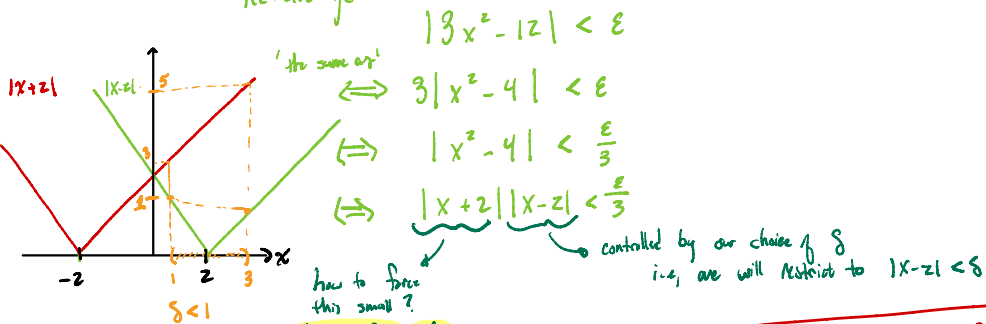 |3x² - 12| < ε
'the same as'
⟺ 3|x² - 4| < ε
⟺ |x² - 4| < ε/3
⟺ |x + 2||x - 2| < ε/3
how to force
this small?
controlled by our choice of δ
i.e., we will restrict to |x - 2| < δ
|x+2|
|x-2|
5
3
1
-2
2
x
1
3
δ < 1